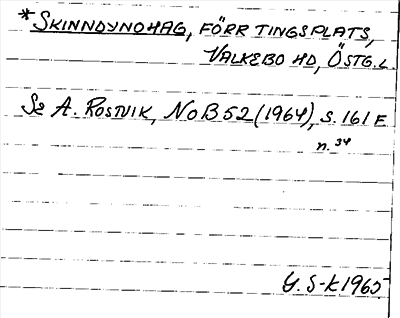 *SKINNDYNOHAG, FÖRR TINGSPLATS,
VALKEBO HD, ÖSTG.L.
Se A. ROSTVIK, NoB 52 (1964), s. 161 F
n. 34
G. S-K 1965